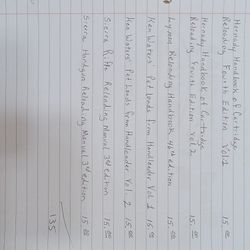 Hornady Handbook of Cartridge
Reloading Fourth Edition Vol 1 15.00
Hornady Handbook of Cartridge
Reloading Fourth Edition Vol 2 15.00
Lyman Reloading Handbook 46th edition 15.00
Ken Waters' Pet Loads from Handloader Vol 1 15.00
Ken Waters' Pet Loads from Handloader Vol. 2 15.00
Sierra Rifle Reloading Manual 3rd edition 15.00
Sierra Handgun Reloading Manual 3rd edition 15.00
135